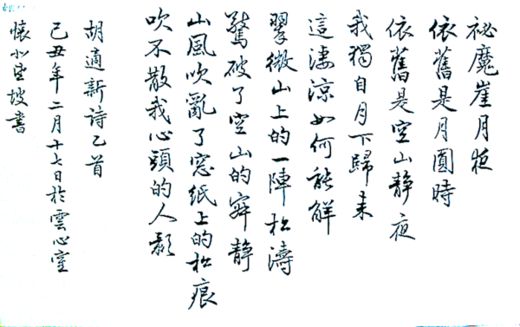 祕魔崖月夜
依舊是月圓時
依舊是空山靜夜
我獨自月下歸來
這淒涼如何能解
翠微山上的一陣松濤
驚破了空山的寂靜
山風吹亂了窓紙上的松痕
吹不散我心頭的人影
胡適新詩乙首
己丑年二月十七日於雲心室
懷
坡書